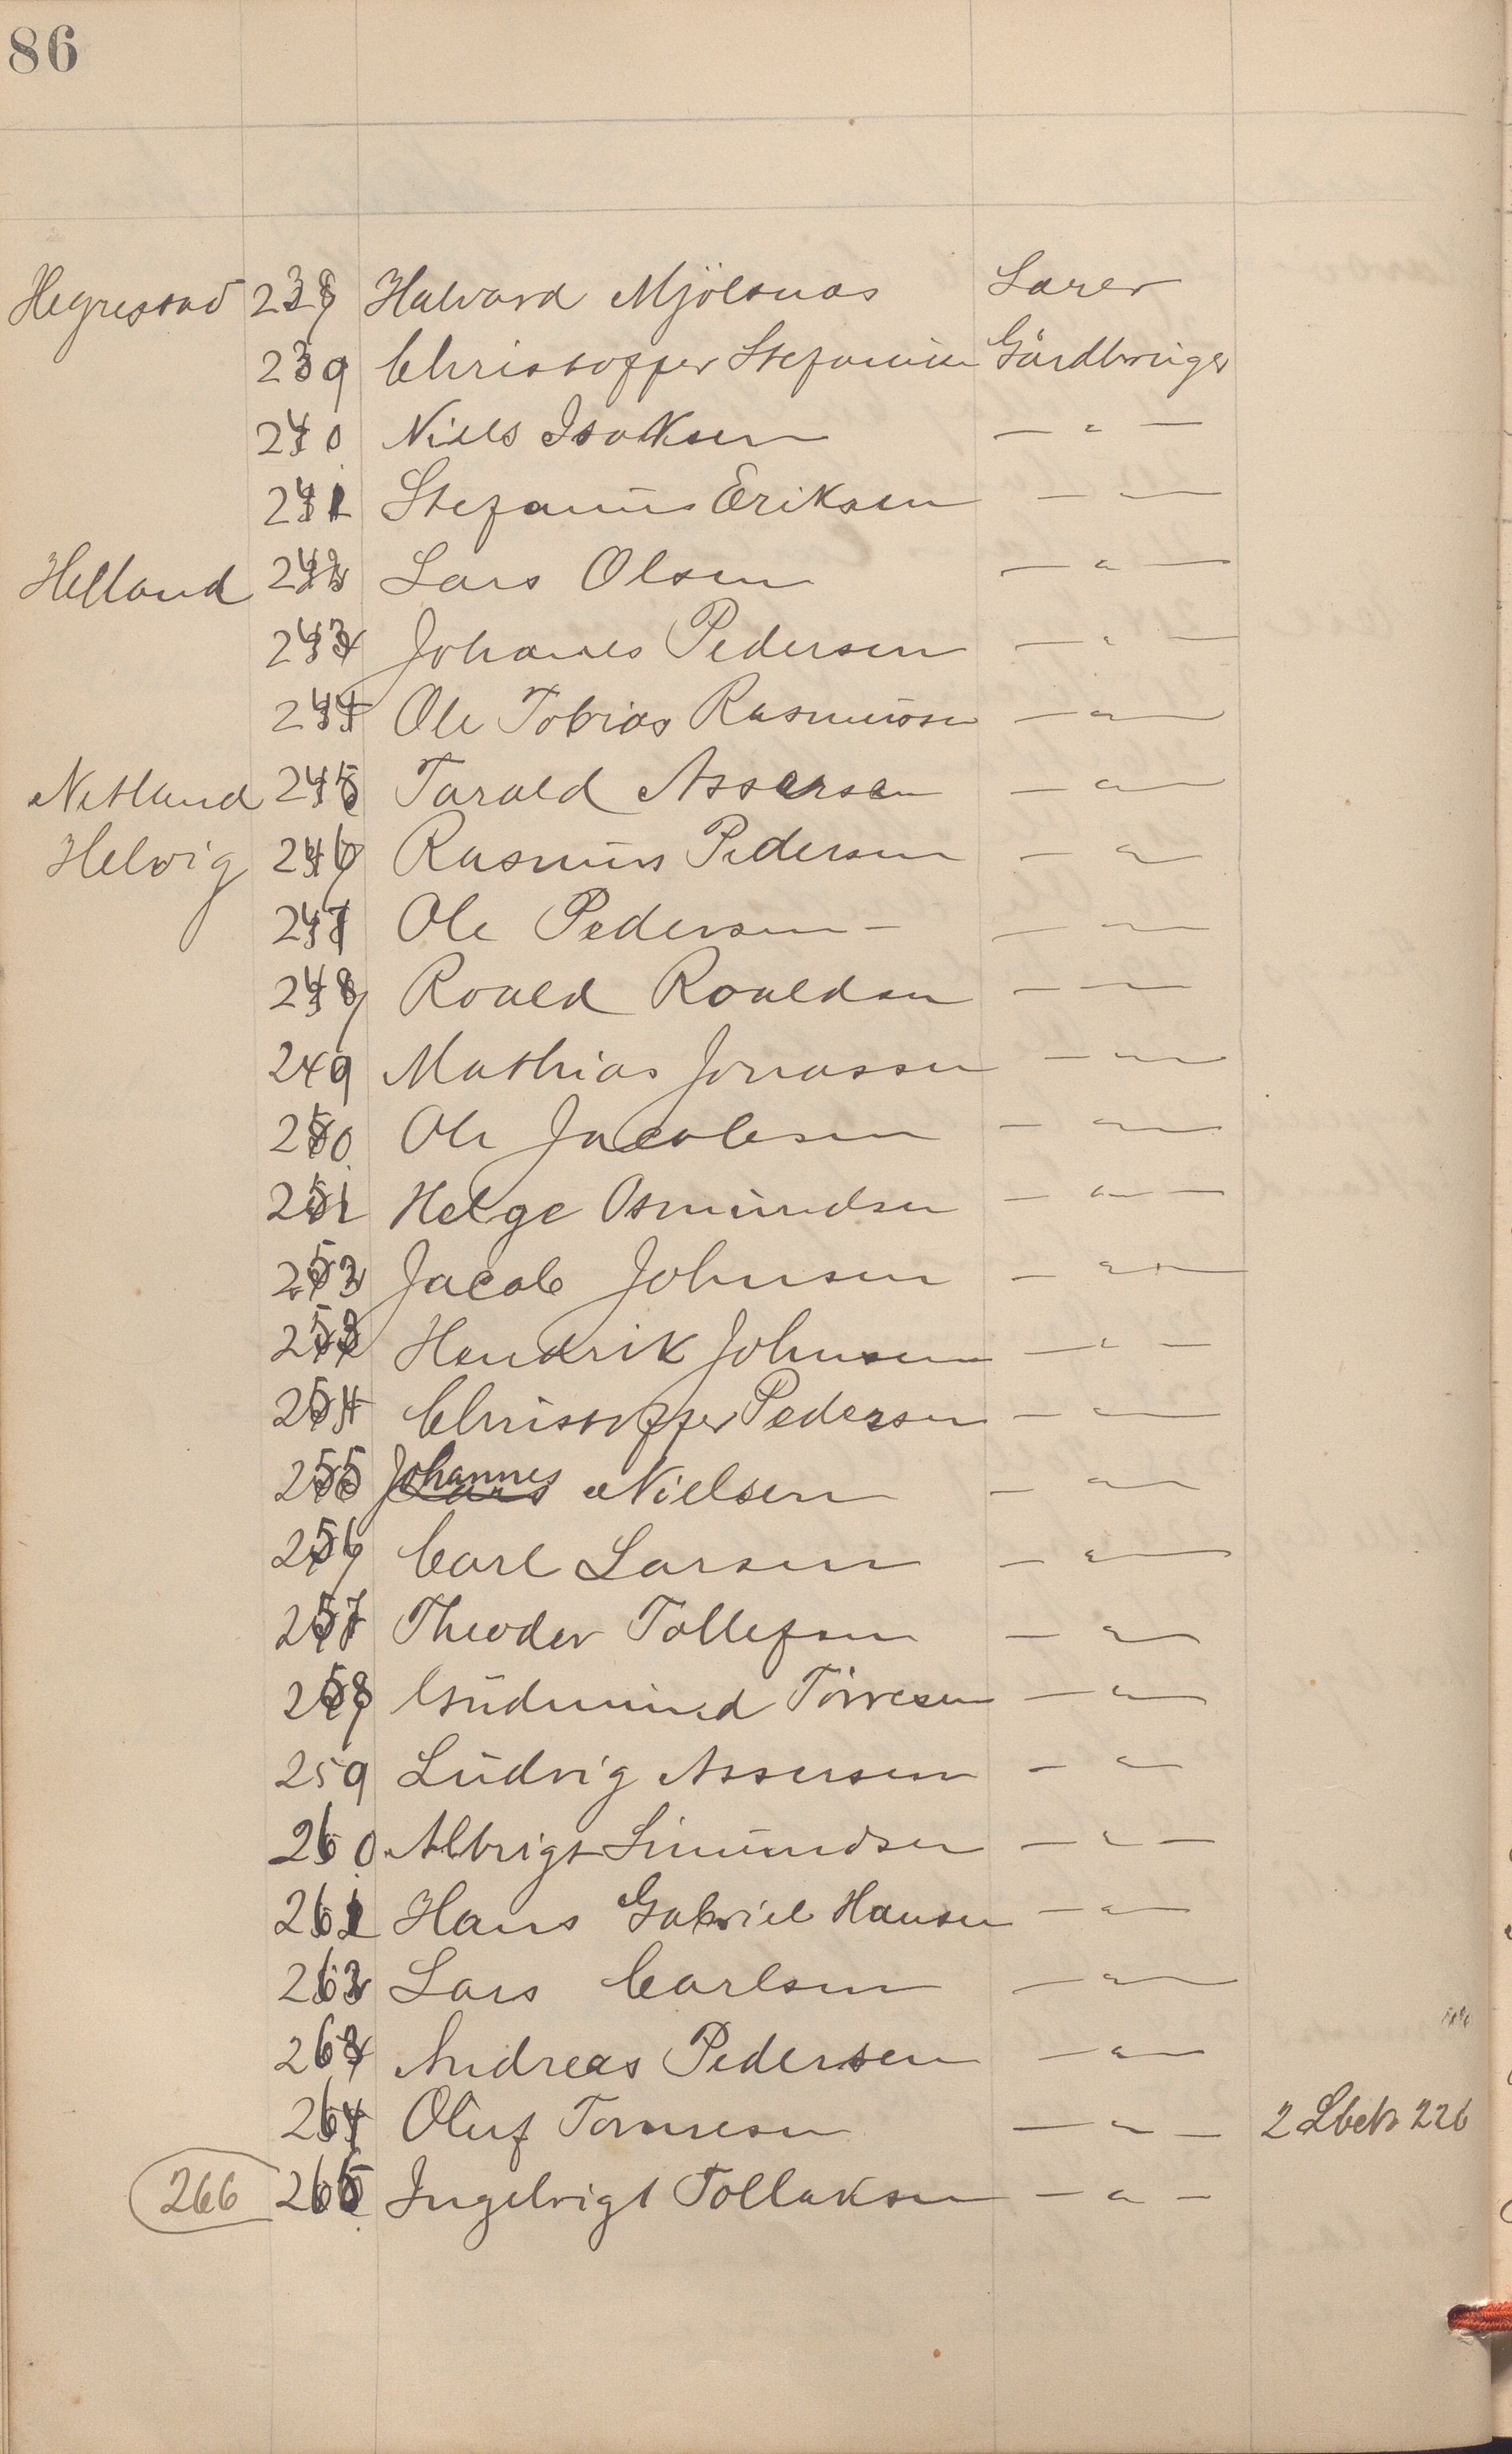 86
Hegrestad 238 Halvard Mjölsnas Larer
239 Christoffer Stefansen Gårdbruger
240 Niels Isaksen — " —
241 Stefanus Eriksen — " —
Helland 242 Lars Olsen — " —
243 Johanes Pedersen — " —
244 Ole Tobias Rasmussen — " —
Netland 245 Tarald Assersen — " —
Helvig 246 Rasmus Pedersen — " —
247 Ole Pedersen — — " —
248 Roald Roaldsen — " —
249 Mathias Jonassen — " —
250 Ole Jacobsen — " —
251 Helge Osmundsen — " —
252 Jacob Johnsen — " —
253 Hendrik Johnsen — " —
254 Christoffer Pedersen — " —
255 Johannes Nielsen — " —
256 Carl Larsen — " —
257 Theodor Tollefsen — " —
258 Gudmund Törresen — " —
259 Ludvig Assersen — " —
260 Albrigt Simundsen — " —
261 Hans Gabriel Hansen — " —
262 Lars Carlsen — " —
263 Andreas Pedersen — " —
264 Oluf Tonnesen — " — 226
266 265 Ingebrigt Tollaksen — " —